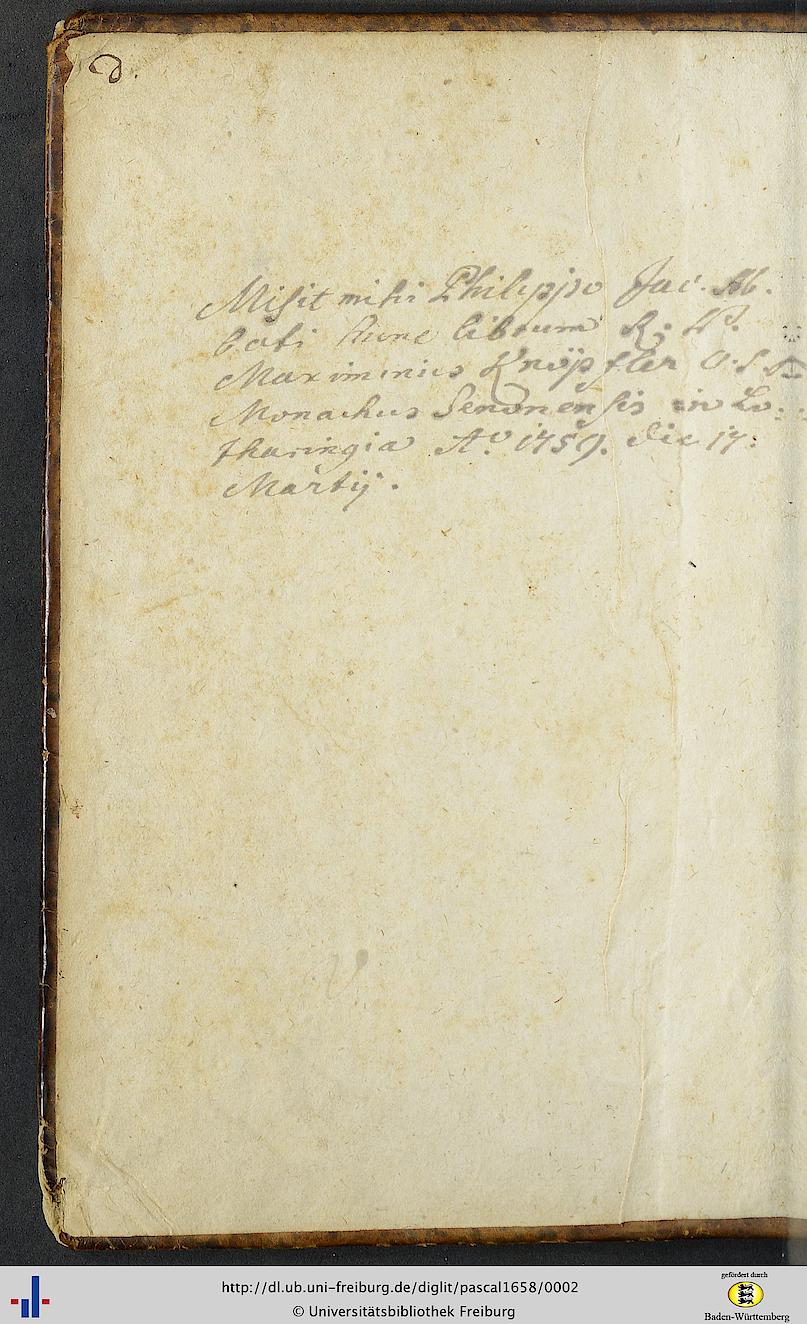 d.
Misit mihi Philippo Jac. Ab-
bati hunc librum R: P.
Maximinus Knöpfler O. S.
Monachus Senonensis in Lo:
tharingia Aº. 1759. die 17:
Martij.
http://dl.ub.uni-freiburg.de/diglit/pascal1658/0002
© Universitätsbibliothek Freiburg
gefördert durch
Baden-Württemberg